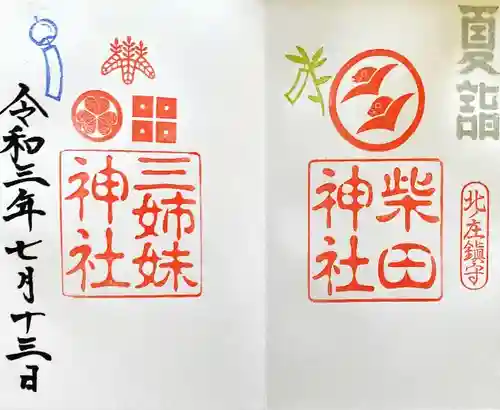 夏詣
北庄鎮守
柴田
神社
三姉妹
神社
令和三年七月十三日